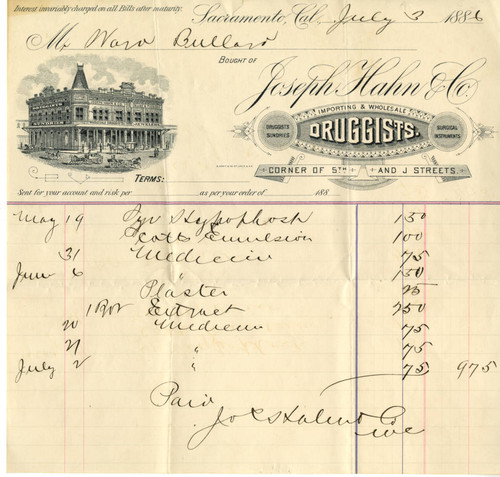 Interest invariably charged on all Bills after maturity.
Sacramento, Cal. July 3 1886
Mr Ward Bullard
BOUGHT OF
Joseph Hahn & Co.
IMPORTING & WHOLESALE
DRUGGISTS SUNDRIES DRUGGISTS. SURGICAL INSTRUMENTS
CORNER OF 5TH AND J STREETS.
TERMS:
Sent for your account and risk per as per your order of 188
May 19 Syr Hypophosh 150
Scotts Emulsion 100
31 Medicin 75
June 6 " 150
Plaster 25
1 Box Extract 250
20 Medicin 75
21 " 75
July 2 " 75 975
Paid
Jos Hahn & Co